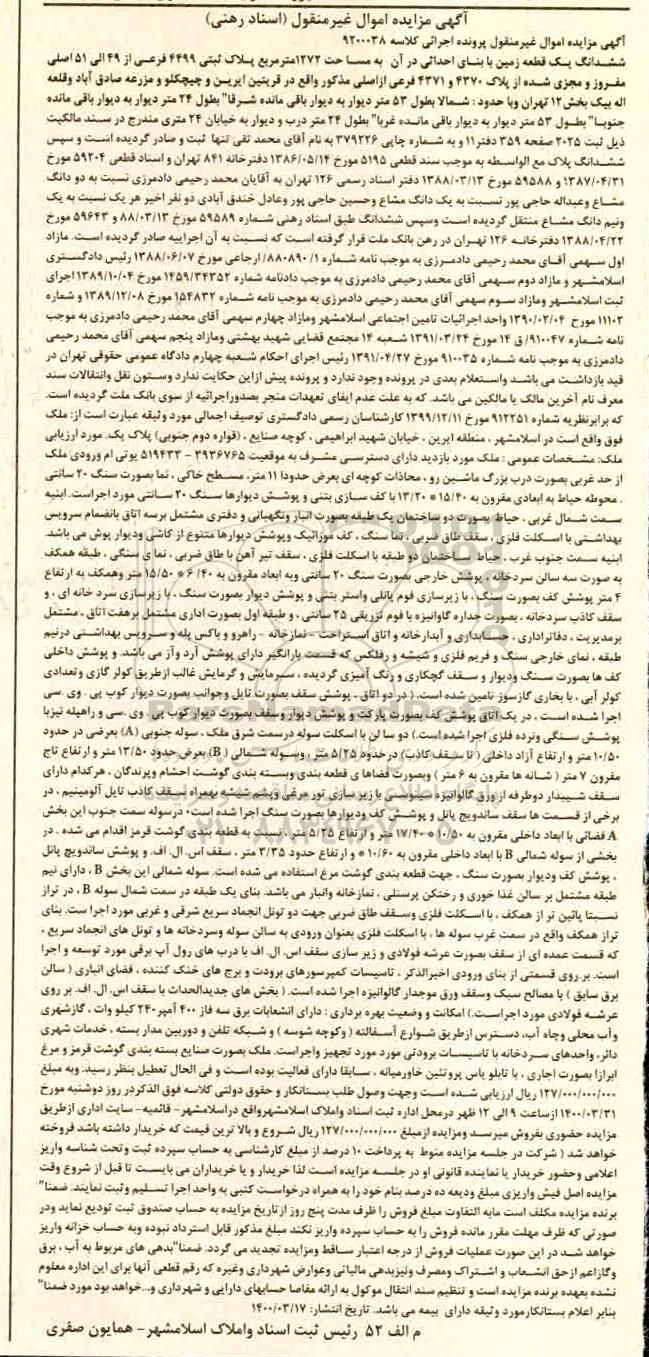 آگهی مزایده اموال غیرمنقول (اسناد رهنی)
آگهی مزایده اموال غیرمنقول پرونده اجرائی کلاسه ۹۲۰۰۰۳۸
ششدانگ یک قطعه زمین با بنای احداثی در آن به مساحت ۱۲۷۲مترمربع پلاک ثبتی ۴۴۹۹ فرعی از ۴۹ الی ۵۱ اصلی
مفروز و مجزی شده از پلاک ۴۳۷۰ و ۴۳۷۱ فرعی ازاصلی مذکور واقع در قریتین ایرین و چیچکلو و مزرعه صادق آباد وقلعه
اله بیک بخش۱۲ تهران وبا حدود : شمالا بطول ۵۳ متر دیوار به دیوار باقی مانده شرقا" بطول ۲۴ متر دیوار به دیوار باقی مانده
جنوبا" بطول ۵۳ متر دیوار به دیوار باقی مانده غربا" بطول ۲۴ متر درب و دیوار به خیابان ۲۴ متری مندرج در سند مالکیت
ذیل ثبت ۲۰۲۵ صفحه ۳۵۹ دفتر۱۱ و به شماره چاپی ۳۷۹۲۲۶ به نام آقای محمد تقی تنها ثبت و صادر گردیده است و سپس
ششدانگ پلاک مع الواسطه به موجب سند قطعی ۵۱۹۵ مورخ ۱۳۸۶/۰۵/۱۴ دفترخانه ۸۴۱ تهران و اسناد قطعی ۵۹۲۰۴ مورخ
۱۳۸۷/۰۴/۳۱ و ۵۹۵۸۸ مورخ ۱۳۸۸/۰۳/۱۳ دفتر اسناد رسمی ۱۲۶ تهران به آقایان محمد رحیمی دادمرزی نسبت به دو دانگ
مشاع وعبداله حاجی پور نسبت به یک دانگ مشاع وحسین حاجی پور وعادل خندق آبادی دو نفر اخیر هر یک نسبت به یک
ونیم دانگ مشاع منتقل گردیده است وسپس ششدانگ طبق اسناد رهنی شماره ۵۹۵۸۹ مورخ ۸۸/۰۳/۱۳ و ۵۹۶۴۳ مورخ
۱۳۸۸/۰۴/۲۲ دفترخانه ۱۲۶ تهران در رهن بانک ملت قرار گرفته است که نسبت به آن اجراییه صادر گردیده است. مازاد
اول سهمی آقای محمد رحیمی دادمرزی به موجب نامه شماره ۸۸۰۸۹۰/۱ ارجاعی مورخ ۱۳۸۸/۰۶/۰۷ رئیس دادگستری
اسلامشهر و مازاد دوم سهمی آقای محمد رحیمی دادمرزی به موجب دادنامه شماره ۱۴۵۹/۳۴۳۵۲ مورخ ۱۳۸۹/۱۰/۰۴ اجرای
ثبت اسلامشهر ومازاد سوم سهمی آقای محمد رحیمی دادمرزی به موجب نامه شماره ۱۵۴۸۳۲ مورخ ۱۳۸۹/۱۲/۰۸ و شماره
۱۱۱۰۲ مورخ ۱۳۹۰/۰۲/۰۴ واحد اجرائیات تامین اجتماعی اسلامشهر ومازاد چهارم سهمی آقای محمد رحیمی دادمرزی به موجب
نامه شماره ۹۱۰۰۴۷/ق ۱۴ مورخ ۱۳۹۱/۰۳/۲۴ شعبه ۱۴ مجتمع قضایی شهید بهشتی ومازاد پنجم سهمی آقای محمد رحیمی
دادمرزی به موجب نامه شماره ۹۱۰۰۳۵ مورخ ۱۳۹۱/۰۴/۲۷ رئیس اجرای احکام شعبه چهارم دادگاه عمومی حقوقی تهران در
قید بازداشت می باشد واستعلام بعدی در پرونده وجود ندارد و پرونده پیش ازاین حکایت ندارد وستون نقل وانتقالات سند
معرف نام آخرین مالک یا مالکین می باشد. که به علت عدم ایفای تعهدات منجر بصدوراجرائیه از سوی بانک ملت گردیده است.
که برابرنظریه شماره ۹۱۲۲۵۱ مورخ ۱۳۹۹/۱۲/۱۱ کارشناسان رسمی دادگستری توصیف اجمالی مورد وثیقه عبارت است از: ملک
فوق واقع است در اسلامشهر ، منطقه ایرین ، خیابان شهید ابراهیمی ، کوچه صنایع ، (قواره دوم جنوبی) پلاک یک. مورد ارزیابی
ملک: مشخصات عمومی : ملک مورد بازدید دارای دسترسی مشرف به موقعیت ۳۹۳۶۷۶۵ – ۵۱۹۴۳۳ یوتی ام ورودی ملک
از حد غربی بصورت درب بزرگ ماشین رو ، محاذات کوچه ای بعرض حدودا ۱۱ متر، مسطح خاکی ، نما بصورت سنگ ۲۰ سانتی
. محوطه حیاط به ابعادی مقرون به ۱۵/۴۰ * ۱۳/۲۰ با کف سازی بتنی و پوشش دیوارها سنگ ۲۰ سانتی مورد اجراست. ابنیه
سمت شمال غربی ، حیاط بصورت دو ساختمان یک طبقه بصورت انبار ونگهبانی و دفتری مشتمل برسه اتاق بانضمام سرویس
بهداشتی با اسکلت فلزی ، سقف طاق ضربی ، نما سنگ ، کف موزائیک وپوشش دیوارها متنوع از کاشی ودیوار پوش می باشد.
ابنیه سمت جنوب غرب ، حیاط ساختمان دو طبقه با اسکلت فلزی ، سقف تیر آهن با طاق ضربی ، نمای سنگی ، طبقه همکف
به صورت سه سالن سردخانه ، پوشش خارجی بصورت سنگ ۲۰ سانتی وبه ابعاد مقرون به ۶/۴۰ * ۱۵/۵۰ متر وهمکف به ارتفاع
۴ متر پوشش کف بصورت سنگ ، با زیرسازی فوم پانلی واستر بتنی و پوشش دیوار بصورت سنگ ، با زیرسازی سرد خانه ای ، و
سقف کاذب سردخانه ، بصورت جداره گاوانیزه با فوم تزریقی ۲۵ سانتی ، و طبقه اول بصورت اداری مشتمل برهفت اتاق ، مشتمل
برمدیریت ، دفاتراداری ، حسابداری و آبدارخانه و اتاق استراحت – نمازخانه – راهرو و باکس پله و سرویس بهداشتی درنیم
طبقه ، نمای خارجی سنگ و فریم فلزی و شیشه و رفلکس که قسمت بارانگیر دارای پوشش آرد وآز می باشد. و پوشش داخلی
کف ها بصورت سنگ ودیوار و سقف گچکاری و رنگ آمیزی گردیده ، سرمایش و گرمایش غالب ازطریق کولر گازی وتعدادی
کولر آبی ، با بخاری گازسوز تامین شده است. ( در دو اتاق ، پوشش سقف بصورت تایل وجوانب بصورت دیوار کوب پی . وی .سی
اجرا شده است ، در یک اتاق پوشش کف بصورت پارکت و پوشش دیوار وسقف بصورت دیوار کوب پی . وی .سی و راهپله نیزبا
پوشش سنگی ونرده فلزی اجرا شده است.) دو سا لن با اسکلت سوله درسمت شرق ملک ، سوله جنوبی (A) بعرضی در حدود
۱۰/۵۰ متر و ارتفاع آزاد داخلی ( تا سقف کاذب) درحدود ۵/۲۵ متر ، وسوله شمالی ( B) بعرض حدود ۱۳/۵۰ متر و ارتفاع تاج
مقرون ۷ متر ( شانه ها مقرون به ۶ متر ) وبصورت فضاها ی قطعه بندی وبسته بندی گوشت احشام وپرندگان ، هرکدام دارای
سقف شیبدار دوطرفه از ورق گالوانیزه سینوسی با زیر سازی تور مرغی وپشم شیشه بهمراه سقف کاذب تایل آلومینیم ، در
برخی از قسمت ها سقف ساندویچ پانل و پوشش کف ودیوارها بصورت سنگ اجرا شده است. درسوله سمت جنوب این بخش
A فضائی با ابعاد داخلی مقرون به ۱۰/۵۰ * ۱۷/۴۰ متر و ارتفاع ۵/۲۵ متر ، نسبت به قطعه بندی گوشت قرمز اقدام می شده . در
بخشی از سوله شمالی B با ابعاد داخلی مقرون به ۱۰/۶۰ * و ارتفاع حدود ۳/۳۵ متر ، سقف اس. ال. اف. و پوشش ساندویچ پانل
، پوشش کف ودیوار بصورت سنگ ، جهت قطعه بندی گوشت مرغ استفاده می شده است. سوله شمالی این بخش B ، دارای نیم
طبقه مشتمل بر سالن غذا خوری و رختکن پرسنلی ، نمازخانه وانبار می باشد. بنای یک طبقه در سمت شمال سوله B ، در تراز
نسبتا پائین تر از همکف ، با اسکلت فلزی وسقف طاق ضربی جهت دو تونل انجماد سریع شرقی و غربی مورد اجرا ست. بنای
تراز همکف واقع در سمت غرب سوله ها ، با اسکلت فلزی بعنوان ورودی به سالن سوله وسردخانه ها و تونل های انجماد سریع ،
که قسمت عمده ای از سقف بصورت عرشه فولادی و زیر سازی سقف اس. ال. اف با درب های رول آپ برقی مورد توسعه و اجرا
است. بر روی قسمتی از بنای ورودی اخیرالذکر ، تاسیسات کمپرسورهای برودت و برج های خنک کننده ، فضای انباری ( سالن
برق سابق ) با مصالح سبک وسقف ورق موجدار گالوانیزه اجرا شده است. ( بخش های جدیدالحداث با سقف اس. ال. اف. بر روی
عرشه فولادی مورد اجراست.) امکانت و وضعیت بهره برداری : دارای انشعابات برق سه فاز ۴۰۰ آمپر۲۴۰ کیلو وات ، گازشهری
وآب محلی وچاه آب. دسترس ازطریق شوارع آسفالته ( وکوچه شوسه ) و شبکه تلفن و دوربین مدار بسته ، خدمات شهری
دائر، واحدهای سردخانه با تاسیسات برودتی مورد مورد تجهیز واجراست. ملک بصورت صنایع بسته بندی گوشت قرمز و مرغ
ابرازا بصورت اجاری ، با تابلو یاس پروتئین خاورمیانه ، سابقا دارای فعالیت بوده است و فی الحال تعطیل بنظر رسید. وبه مبلغ
۱۲۷/۰۰۰/۰۰۰/۰۰۰ ریال ارزیابی شده است وجهت وصول طلب بستانکار و حقوق دولتی کلاسه فوق الذکردر روز دوشنبه مورخ
۱۴۰۰/۰۳/۳۱ ازساعت ۹ الی ۱۲ ظهر درمحل اداره ثبت اسناد واملاک اسلامشهرواقع دراسلامشهر– قائمیه– سایت اداری ازطریق
مزایده حضوری بفروش میرسد ومزایده ازمبلغ ۱۲۷/۰۰۰/۰۰۰/۰۰۰ ریال شروع و بالا ترین قیمت که خریدار داشته باشد فروخته
خواهد شد ( شرکت در جلسه مزایده منوط به پرداخت ۱۰ درصد از مبلغ کارشناسی به حساب سپرده ثبت وتحت شناسه واریز
اعلامی وحضور خریدار یا نماینده قانونی او در جلسه مزایده است لذا خریدار و یا خریداران می بایست تا قبل از شروع وقت
مزایده اصل فیش واریزی مبلغ ودیعه ده درصد بنام خود را به همراه درخواست کتبی به واحد اجرا تسلیم وثبت نمایند. ضمنا"
برنده مزایده مکلف است مابه التفاوت مبلغ فروش را ظرف مدت پنج روز ازتاریخ مزایده به حساب صندوق ثبت تودیع نماید ودر
صورتی که ظرف مهلت مقرر مانده فروش را به حساب سپرده واریز نکند مبلغ مذکور قابل استرداد نبوده وبه حساب خزانه واریز
خواهد شد در این صورت عملیات فروش از درجه اعتبار ساقط ومزایده تجدید می گردد. ضمنا"بدهی های مربوط به آب ، برق
وگازاعم ازحق انشعاب و اشتراک ومصرف ونیزبدهی مالیاتی وعوارض شهرداری وغیره که رقم قطعی آنها برای این اداره معلوم
نشده بعهده برنده مزایده است و تنظیم سند انتقال موکول به ارائه مفاصا حسابهای دارایی و شهرداری و...خواهد بود مورد ضمنا"
بنابر اعلام بستانکارمورد وثیقه دارای بیمه می باشد. تاریخ انتشار: ۱۴۰۰/۰۳/۱۷
م الف ۵۲ رئیس ثبت اسناد واملاک اسلامشهر- همایون صفری